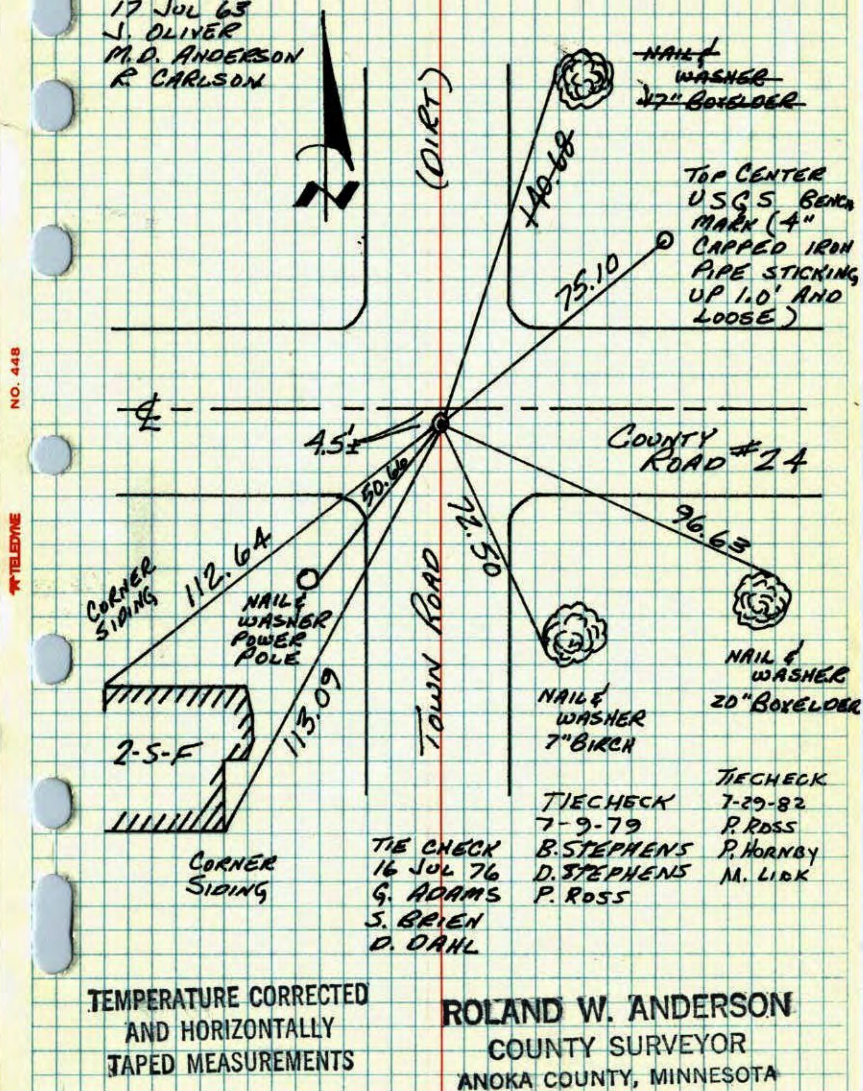 17 JUL 63
J. OLIVER
M.D. ANDERSON
R. CARLSON
N
(DIRT)
NAIL &
WASHER
17" BOXELDER
140.68
TOP CENTER
USGS BENCH
MARK (4"
CAPPED IRON
PIPE STICKING
UP 1.0' AND
LOOSE)
75.10
NO. 448
℄
4.5'±
COUNTY
ROAD #24
50.66
72.50
96.63
TELEDYNE
112.64
CORNER
SIDING
NAIL &
WASHER
POWER
POLE
113.09
TOWN ROAD
NAIL &
WASHER
20" BOXELDER
NAIL &
WASHER
7" BIRCH
2-S-F
CORNER
SIDING
TIE CHECK
16 JUL 76
G. ADAMS
S. BRIEN
D. DAHL
TIECHECK
7-9-79
B. STEPHENS
D. STEPHENS
P. ROSS
TIECHECK
7-29-82
P. ROSS
P. HORNBY
M. LIDK
TEMPERATURE CORRECTED
AND HORIZONTALLY
TAPED MEASUREMENTS
ROLAND W. ANDERSON
COUNTY SURVEYOR
ANOKA COUNTY, MINNESOTA